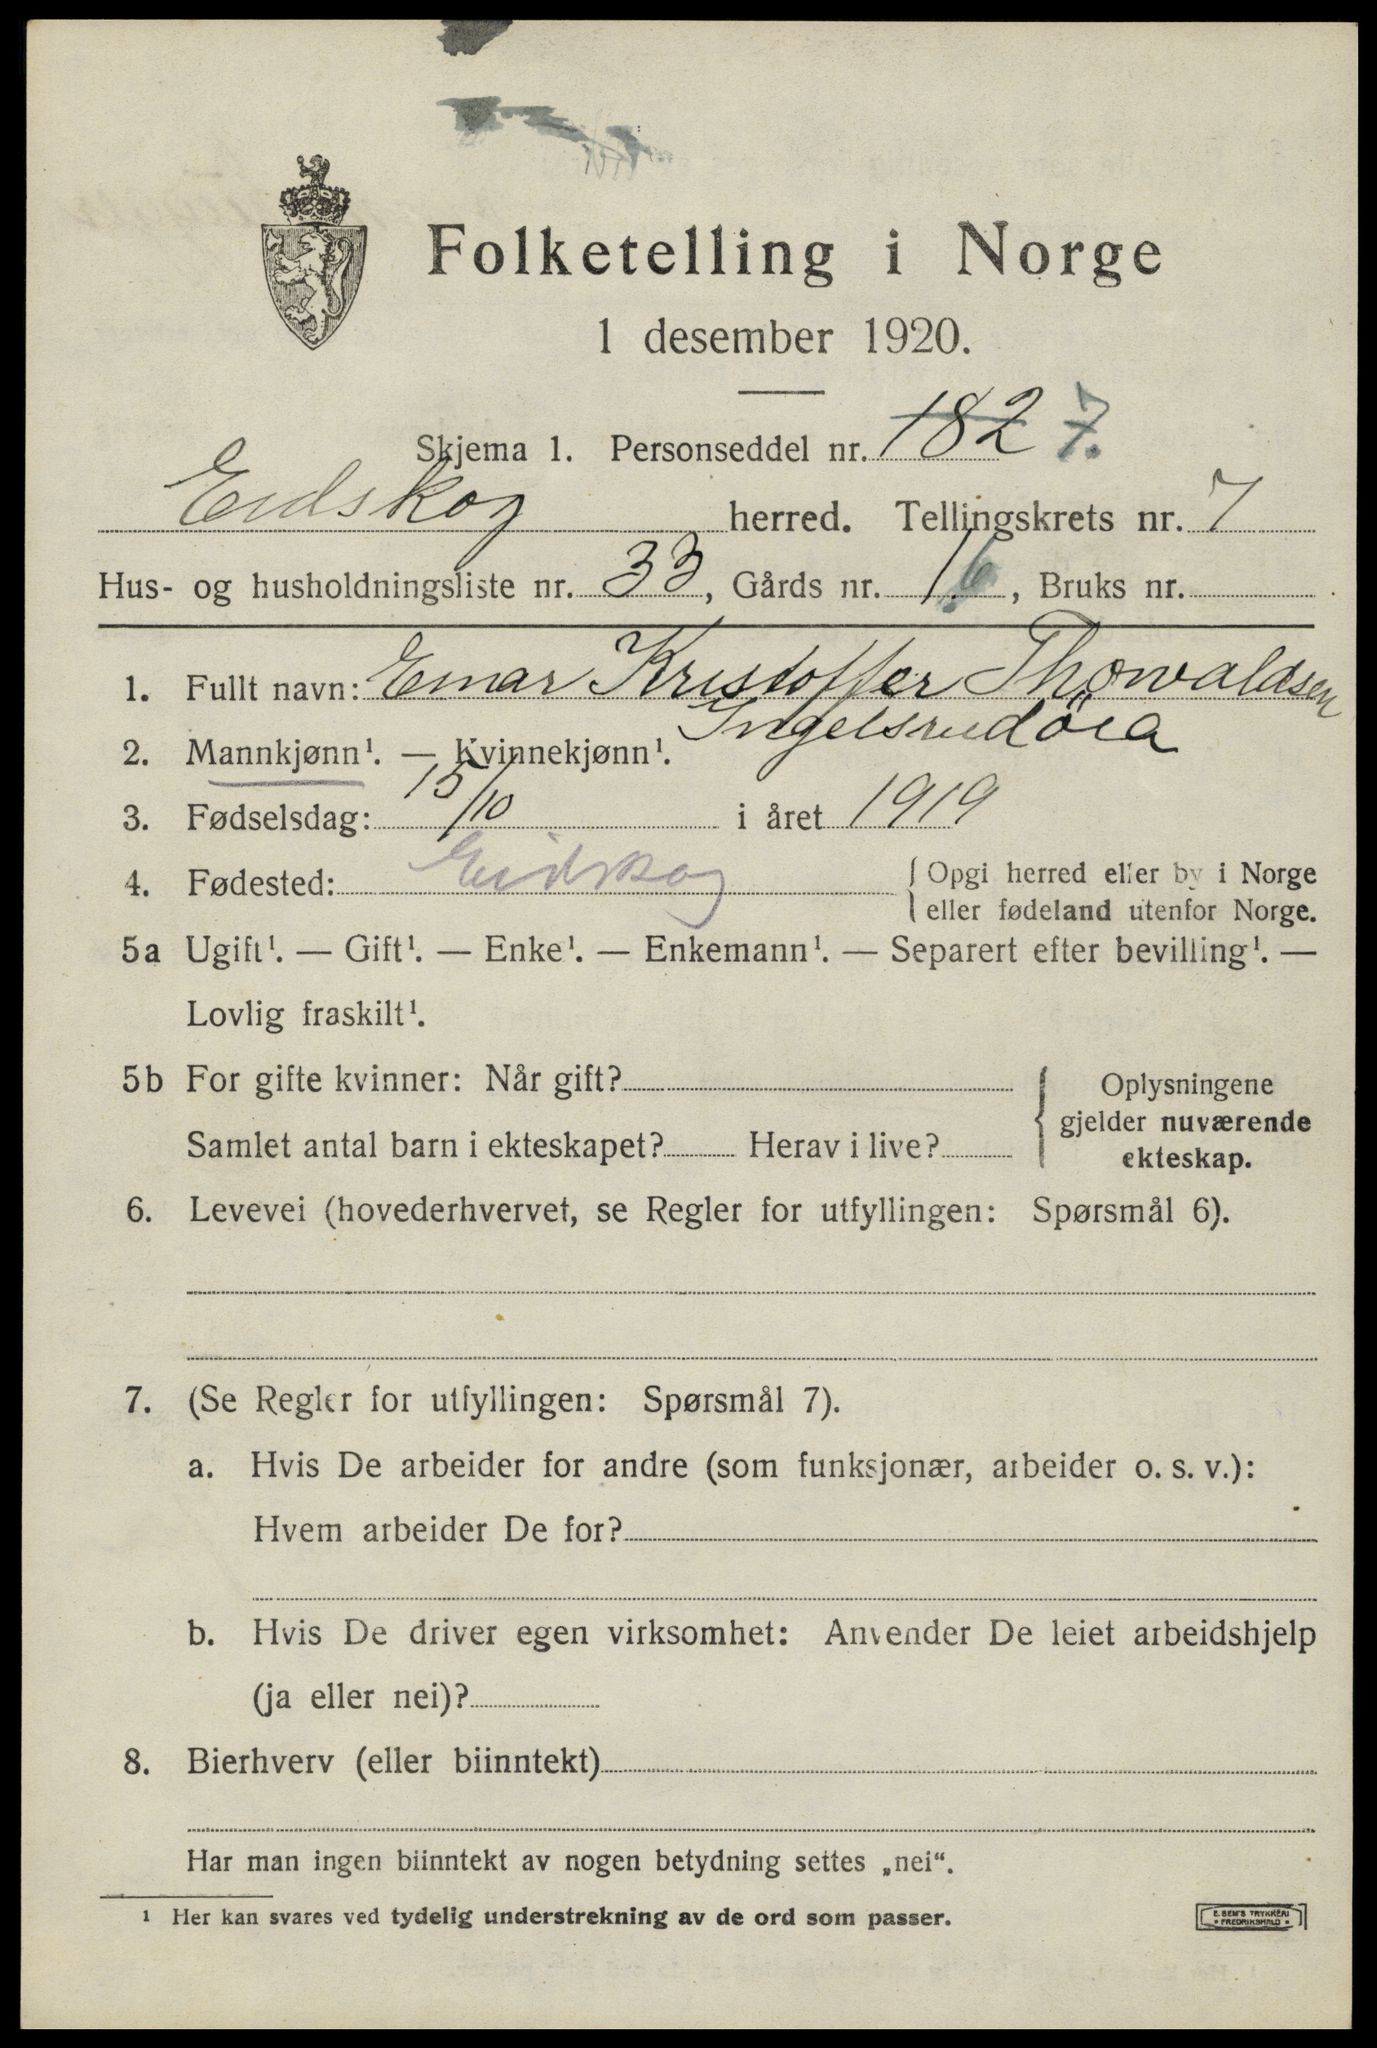 Folketelling i Norge
1 desember 1920.
Skjema 1. Personseddel nr. 182 7.
Eidskog herred. Tellingskrets nr. 7
Hus- og husholdningsliste nr. 33, Gårds nr. 16, Bruks nr.
1. Fullt navn: Einar Kristoffer Thorvaldsen
Ingelsrudöia
2. Mannkjønn¹. — Kvinnekjønn¹.
3. Fødselsdag: 15/10 i året 1919
4. Fødested: Eidskog { Opgi herred eller by i Norge
eller fødeland utenfor Norge.
5a Ugift¹. — Gift¹. — Enke¹. — Enkemann¹. — Separert efter bevilling¹. —
Lovlig fraskilt¹.
5b For gifte kvinner: Når gift?
Samlet antal barn i ekteskapet? Herav i live?
{ Oplysningene
gjelder nuværende
ekteskap.
6. Levevei (hovederhvervet, se Regler for utfyllingen: Spørsmål 6).
7. (Se Regler for utfyllingen: Spørsmål 7).
a. Hvis De arbeider for andre (som funksjonær, arbeider o. s. v.):
Hvem arbeider De for?
b. Hvis De driver egen virksomhet: Anvender De leiet arbeidshjelp
(ja eller nei)?
8. Bierhverv (eller biinntekt)
Har man ingen biinntekt av nogen betydning settes „nei“.
¹ Her kan svares ved tydelig understrekning av de ord som passer.
E. SEM'S TRYKKERI
• FREDRIKSHALD •